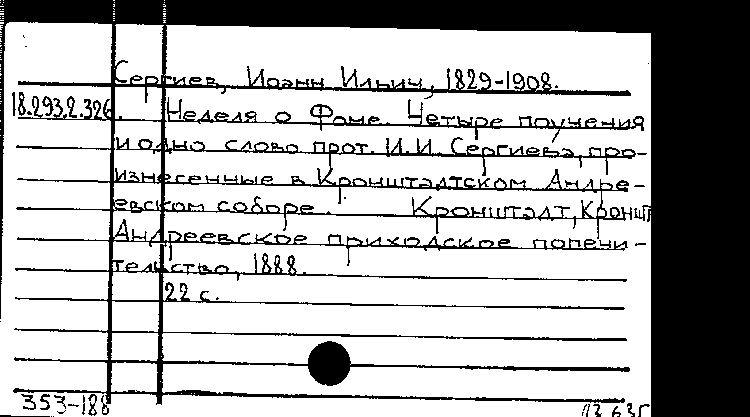 Сергиев, Иоанн Ильич, 1829-1908.
18.293.2.326. Неделя о Фоме. Четыре поучения
и одно слово прот. И.И. Сергиева, про-
изнесенные в Кронштадтском Андре-
евском соборе. Кронштадт, Кроншт
Андреевское приходское попечи-
тельство, 1888.
22 с.
353-188